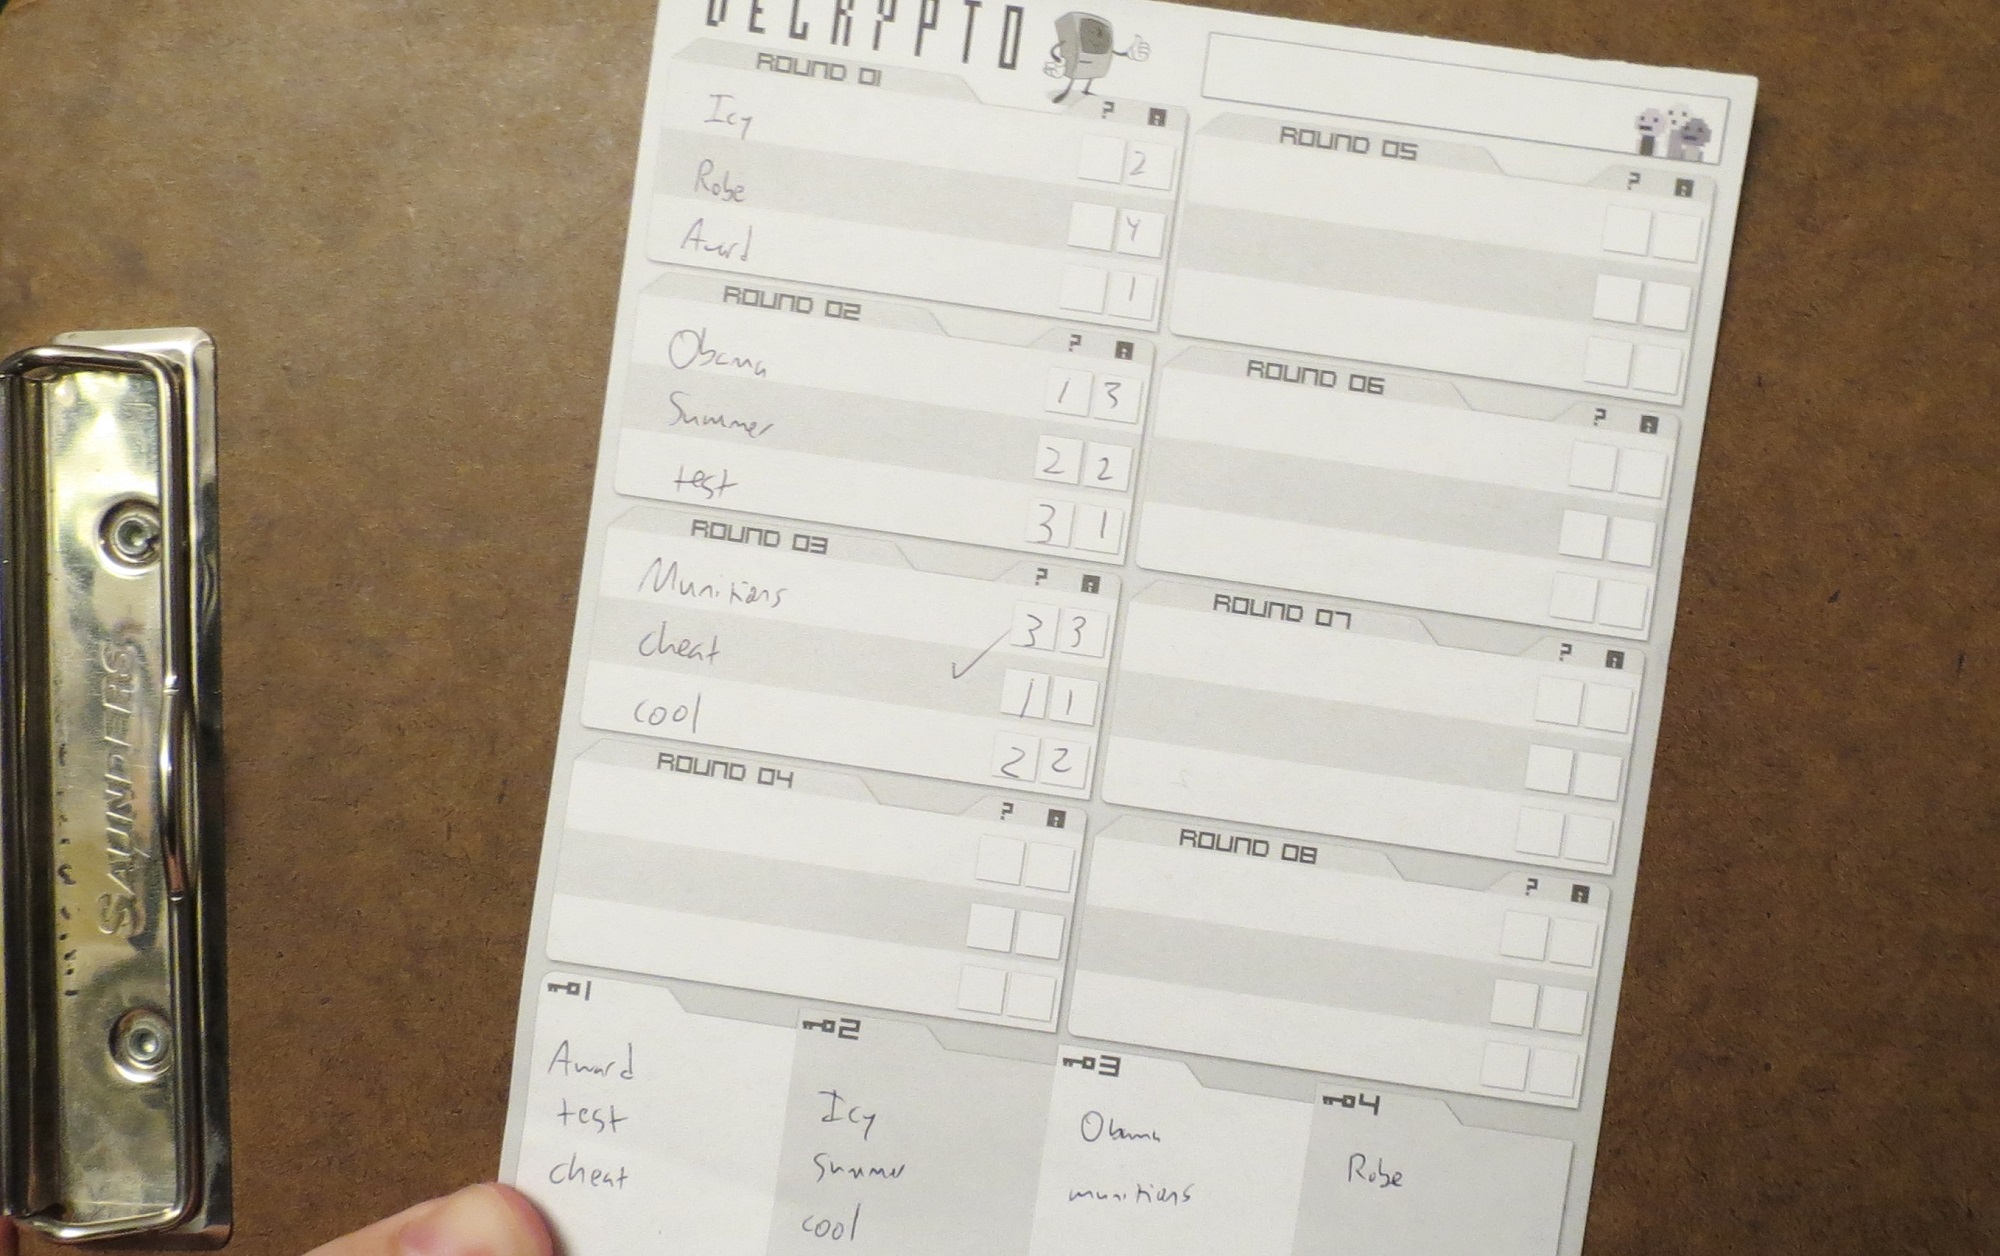 DECRYPTO
ROUND 01
? 
Icy 2
Robe 4
Award 1
ROUND 02
?
Obama 1 3
Summer 2 2
test 3 1
ROUND 03
?
Munitions 3 3
cheat 1 1
cool 2 2
ROUND 04
?
ROUND 05
?
ROUND 06
?
ROUND 07
?
ROUND 08
?
1
Award
test
cheat
2
Icy
Summer
cool
3
Obama
munitions
4
Robe
SAUNDERS